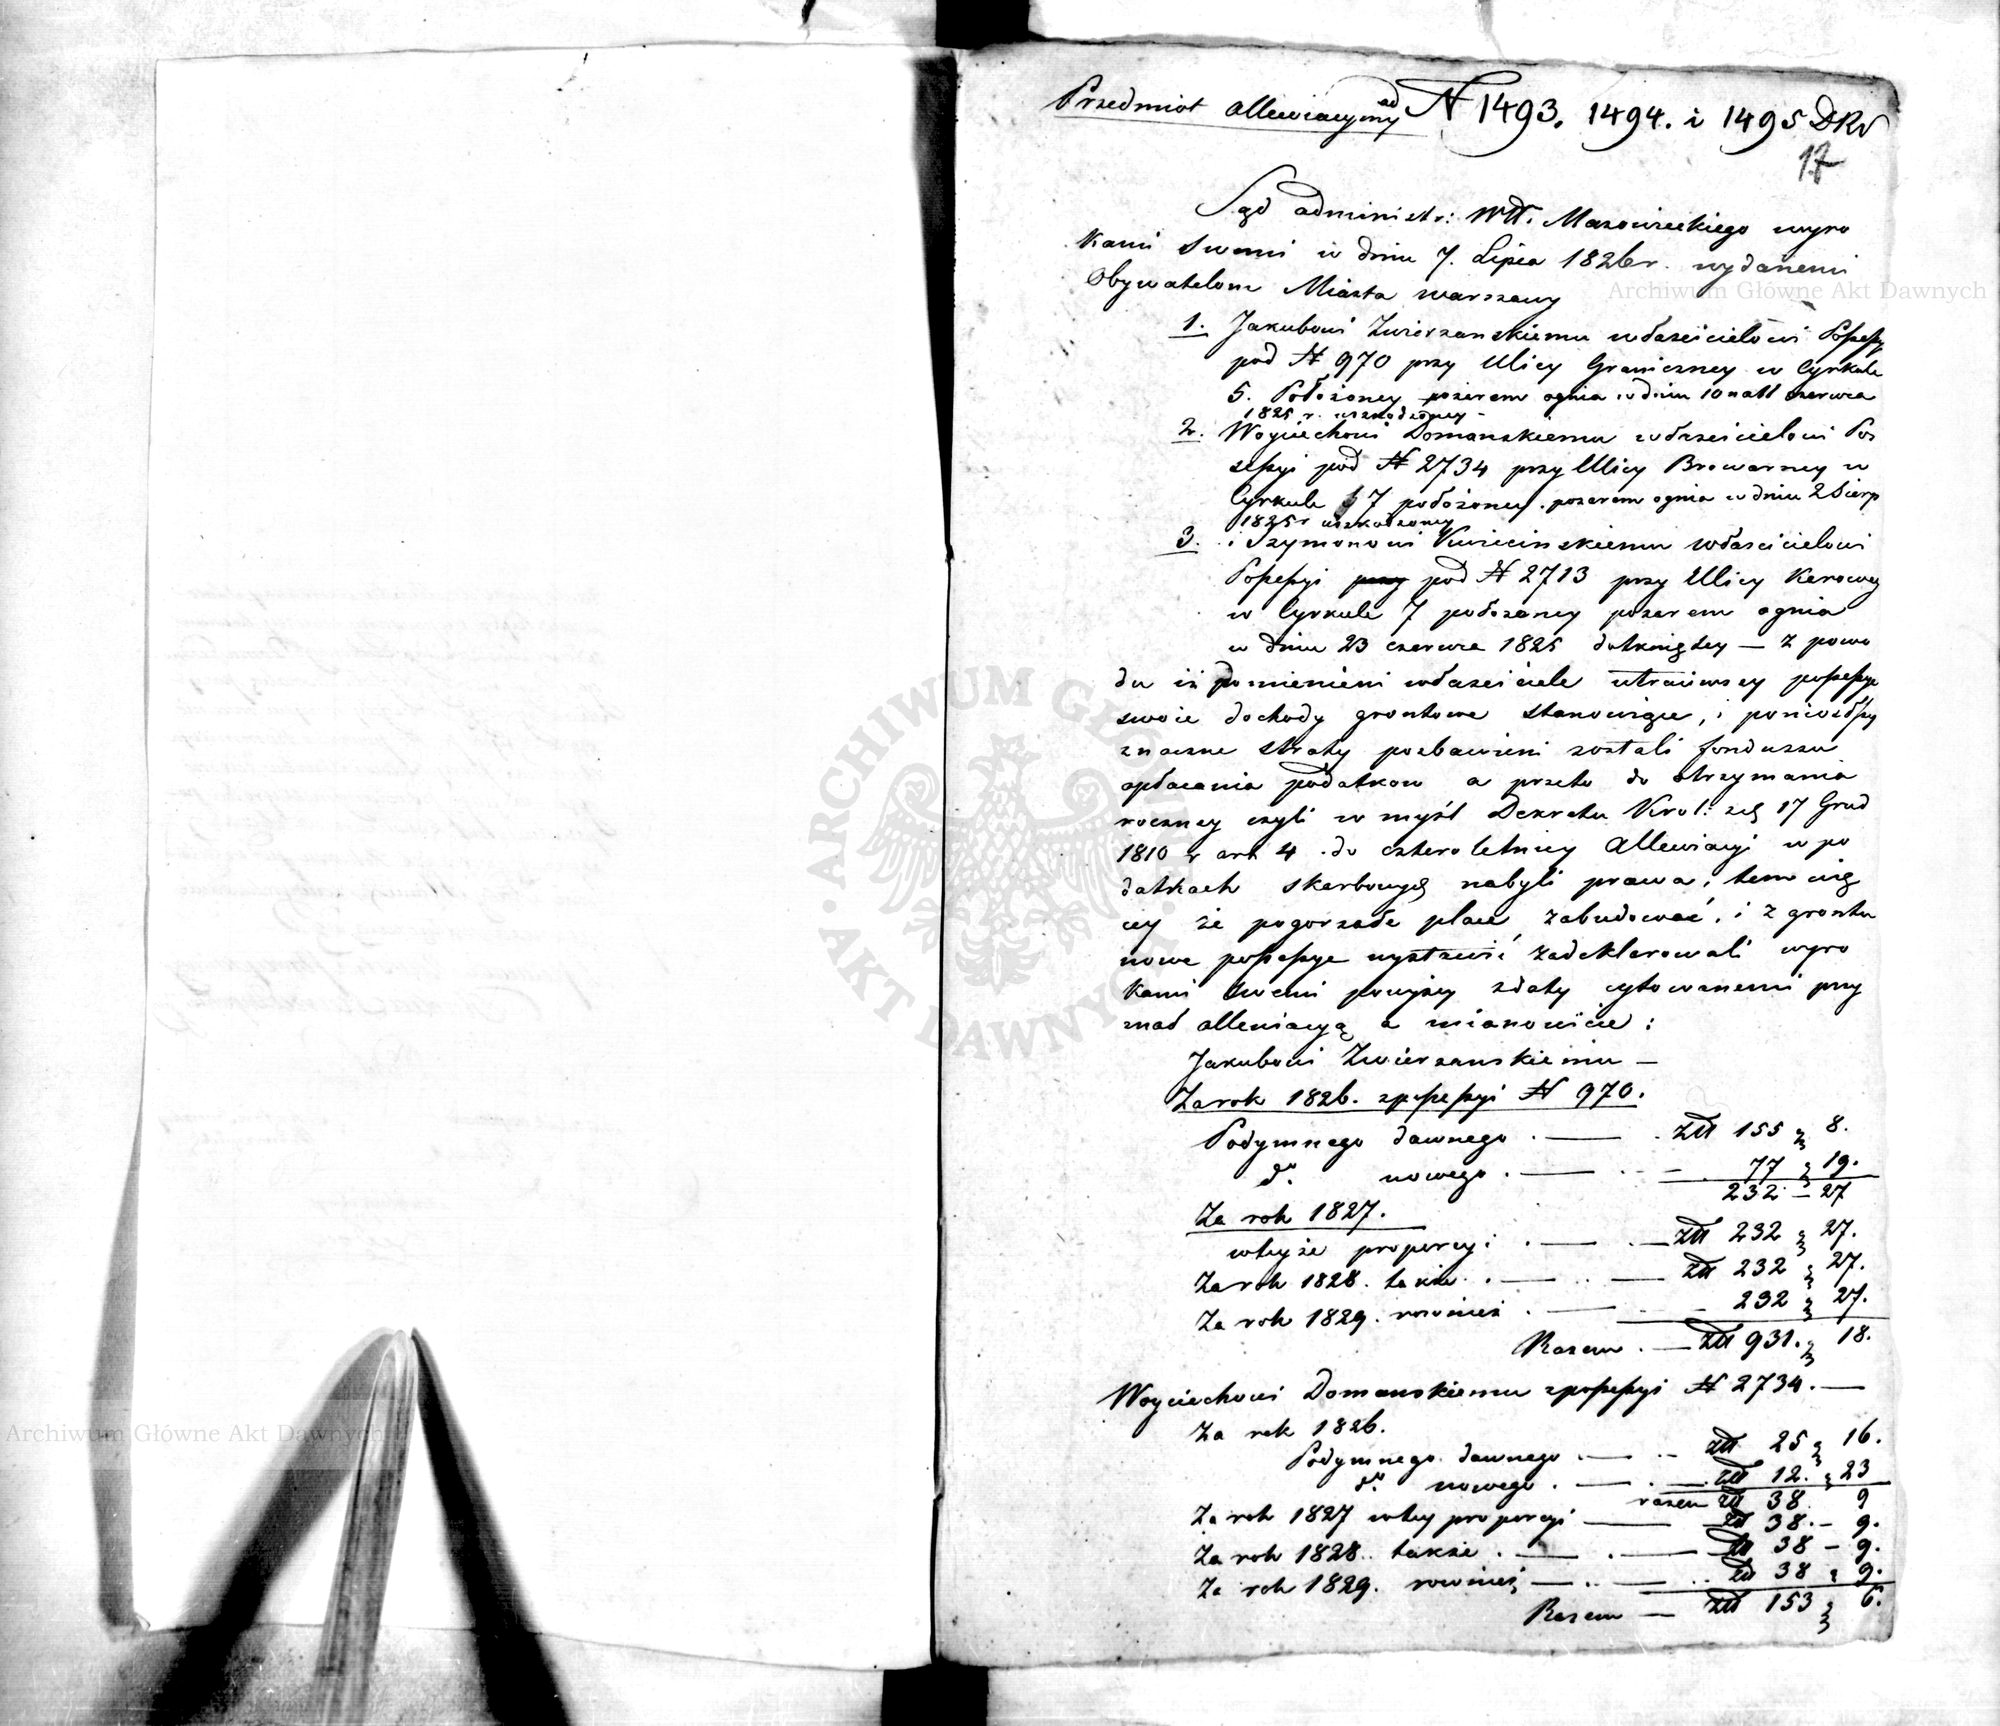 Przedmiot allewiacyiny ad N 1493. 1494. i 1495 DRS
17
Sąd administr: Wtt. Mazowieckiego wyro
kami swemi w dniu 7. Lipca 1826 r. wydanemi
Obywatelom Miasta warszawy
1. Jakubowi Zwierzanskiemu właścicielowi Possessyi
pod N 970 przy Ulicy Graniczney w Cyrkule
5. Położoney pożarem ognia w dniu 10 na 11 czerwca
1825 r. uszkodzoney -
2. Woyciechowi Domanskiemu właścicielowi Pos
sessyi pod N 2734 przy Ulicy Browarney w
Cyrkule 7 położoney. pożarem ognia w dniu 2 Sierp
1825 r uszkodzoney
3. i Szymonowi Kwiecinskiemu właścicielowi
Possessyi przy pod N 2713 przy Ulicy Karowey
w Cyrkule 7 położoney pożarem ognia
w dniu 23 czerwca 1825 dotkniętey — z powo
du iż pomienieni właściciele utraciwszy possessye
swoie dochody grontowe stanowiące, i poniosłszy
znaczne straty pozbawieni zostali funduszu
opłacania podatkow a przeto do otrzymania
roczney czyli w myśl Dekretu Krol: z d 17 Grud
1810 r art 4 do cztero letniey Allewiacyi w po
datkach skarbowych nabyli prawa, tem wię
cey że pogorzałe place zabudować, i z grontu
nowe possessye wystawić zadeklarowali wyro
kami swemi powyżey z daty cytowanemi przy
znał allewiacyą a mianowicie:
Jakubowi Zwierzanskiemu —
Za rok 1826. z possessyi N 970.
Podymnego dawnego . — . Złł 155 „ 8.
do. nowego . — . . — 77 „ 19.
232 — 27
Za rok 1827.
w teyże proporcyi . — . — złł 232 „ 27.
Za rok 1828. także . — . . — złł 232 „ 27.
Za rok 1829. rownież . — . . — 232 „ 27.
Razem . — Złł 931. „ 18.
Woyciechowi Domanskiemu z possessyi N 2734. —
Za rok 1826.
Podymnego dawnego . — . . złł 25 „ 16.
do. nowego . — . — . złł 12. „ 23
razem złł 38. 9
Za rok 1827 w tey proporcyi — — złł 38. — 9.
Za rok 1828. także . — . — złł 38 — 9.
Za rok 1829. rownież — . . — . . złł 38 „ 9.
Razem — złł 153 „ 6.
Archiwum Główne Akt Dawnych
Archiwum Główne Akt Dawnych
ARCHIWUM GŁÓWNE · AKT DAWNYCH ·